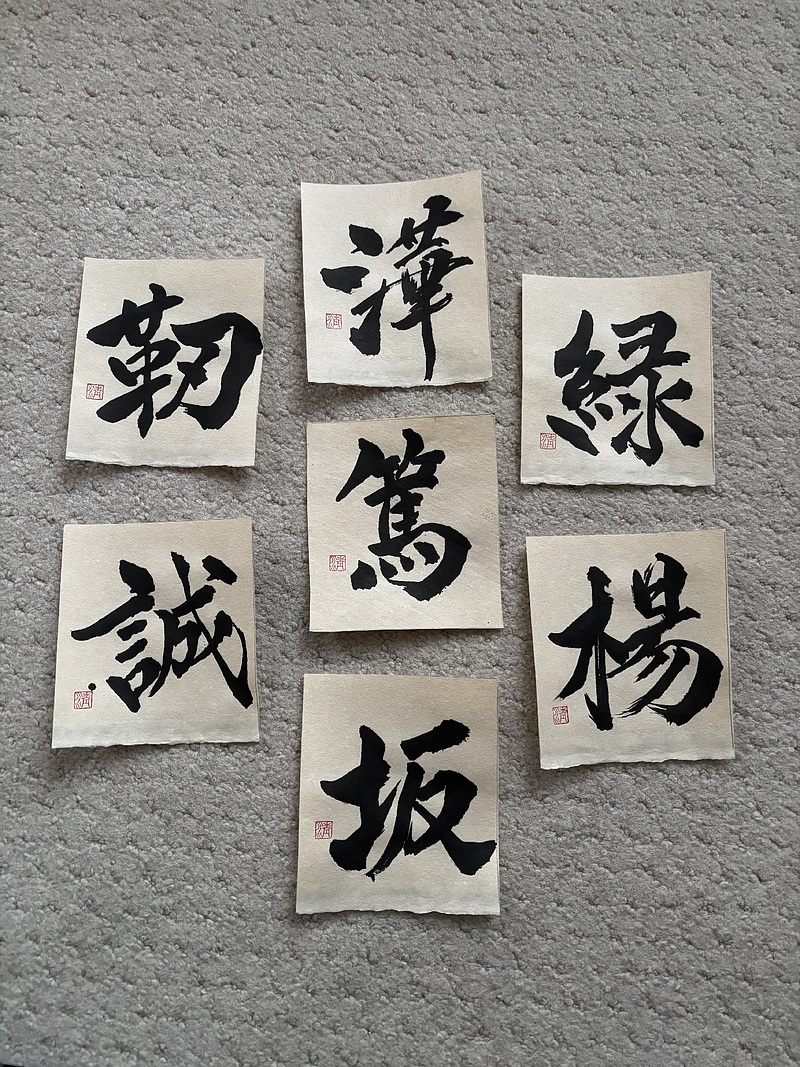 澕
靭
緑
篤
誠
楊
坂